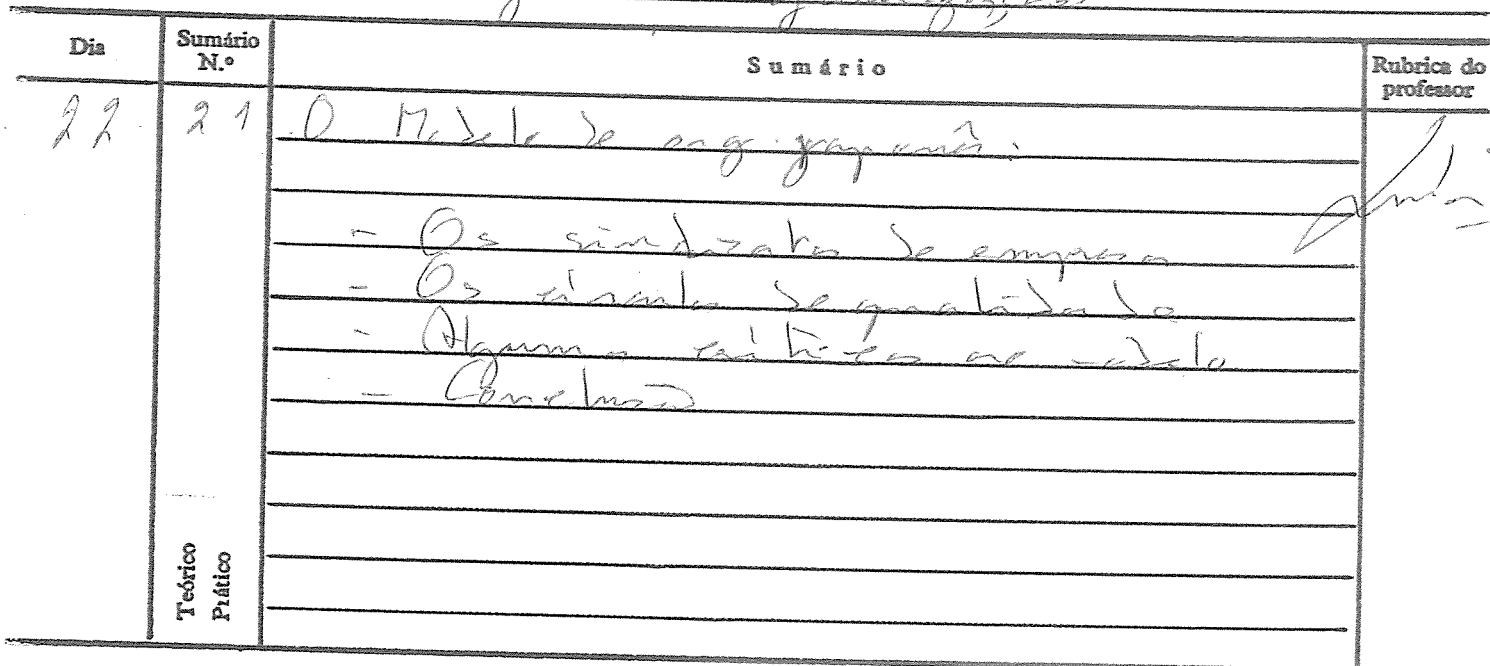 Dia
Sumário N.º
Sumário
Rubrica do professor
22
21
O Modelo de org. japonês:
- Os sindicatos de empresa
- Os círculos de qualidade
- Algumas críticas ao modelo
- Conclusão
Teórico
Prático